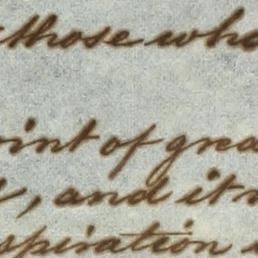 those who
oint of grea
, and it
spiration